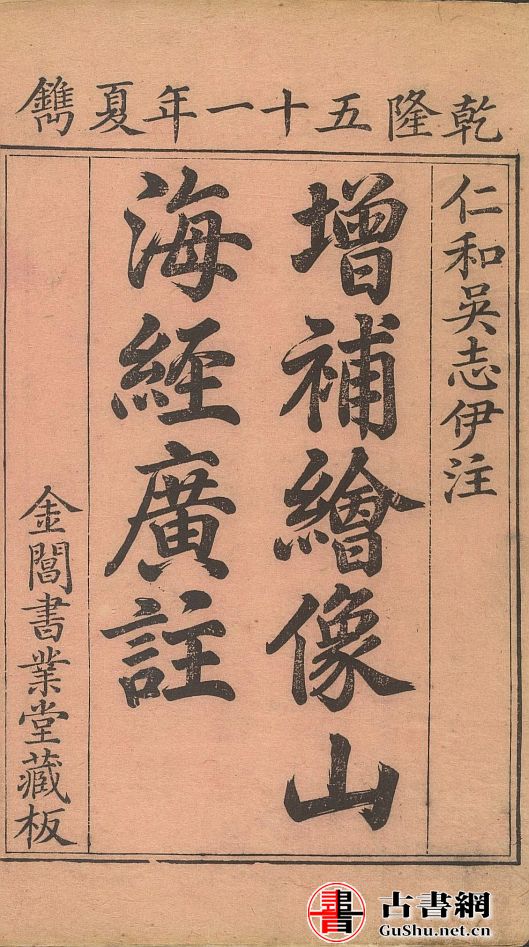 乾隆五十一年夏鐫
仁和吳志伊注
增補繪像山
海經廣註
金閶書業堂藏板
書
古書網
GuShu.net.cn